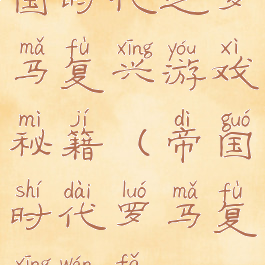 国时代之罗
mǎ fù xīng yóu xì
马复兴游戏
mì jí dì guó
秘籍（帝国
shí dài luó mǎ fù
时代罗马复
xīng wán fǎ